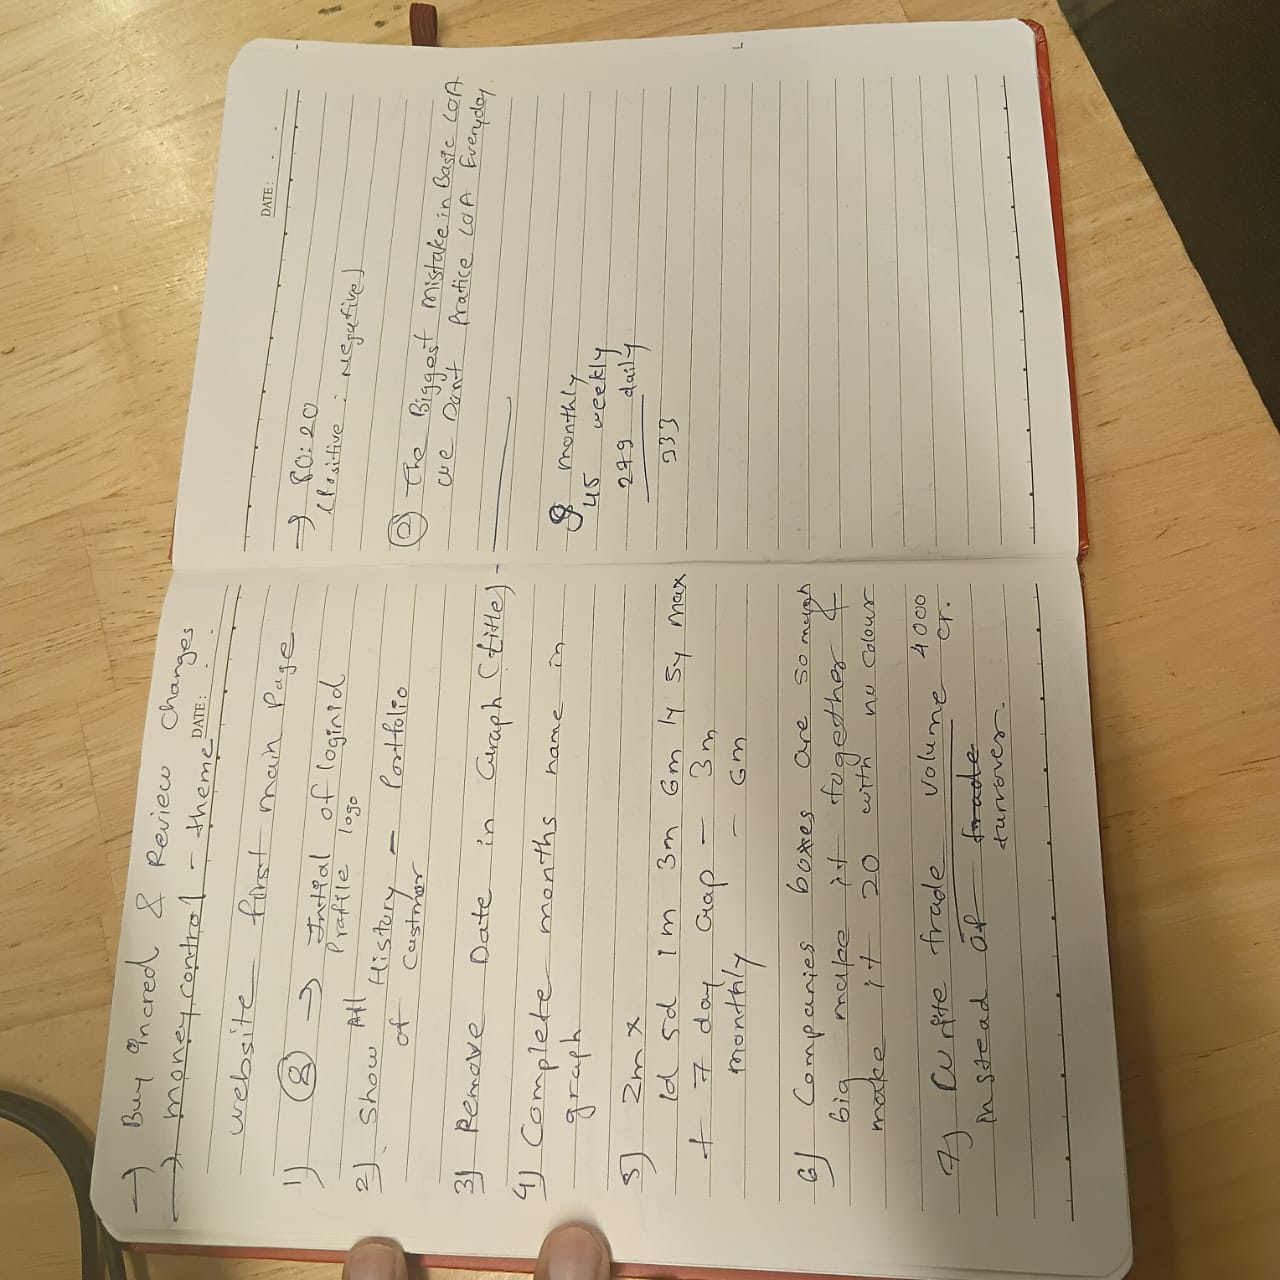 → Buy incred & Review changes
→ moneycontrol - theme
DATE:
website first main page
1) → Initial of loginid
Profile logo
2) Show All History - Portfolio
of Custmor
3) Remove Date in Graph (title) -
4) Complete months name in
graph
5) 2m x
1d 5d 1m 3m 6m 1y 5y max
+ 7 day Gap - 3m
monthly - 6m
6) Companies boxes are so much
big make it together &
make it 20 with no colour
7) Write trade volume 4000
instead of trade cr.
turnover.
DATE:
→ 80:20
(Positive : Negative)
The Biggest Mistake in Basic LOA
We Dont Pratice LOA Everyday.
9 monthly
45 weekly
279 daily
333